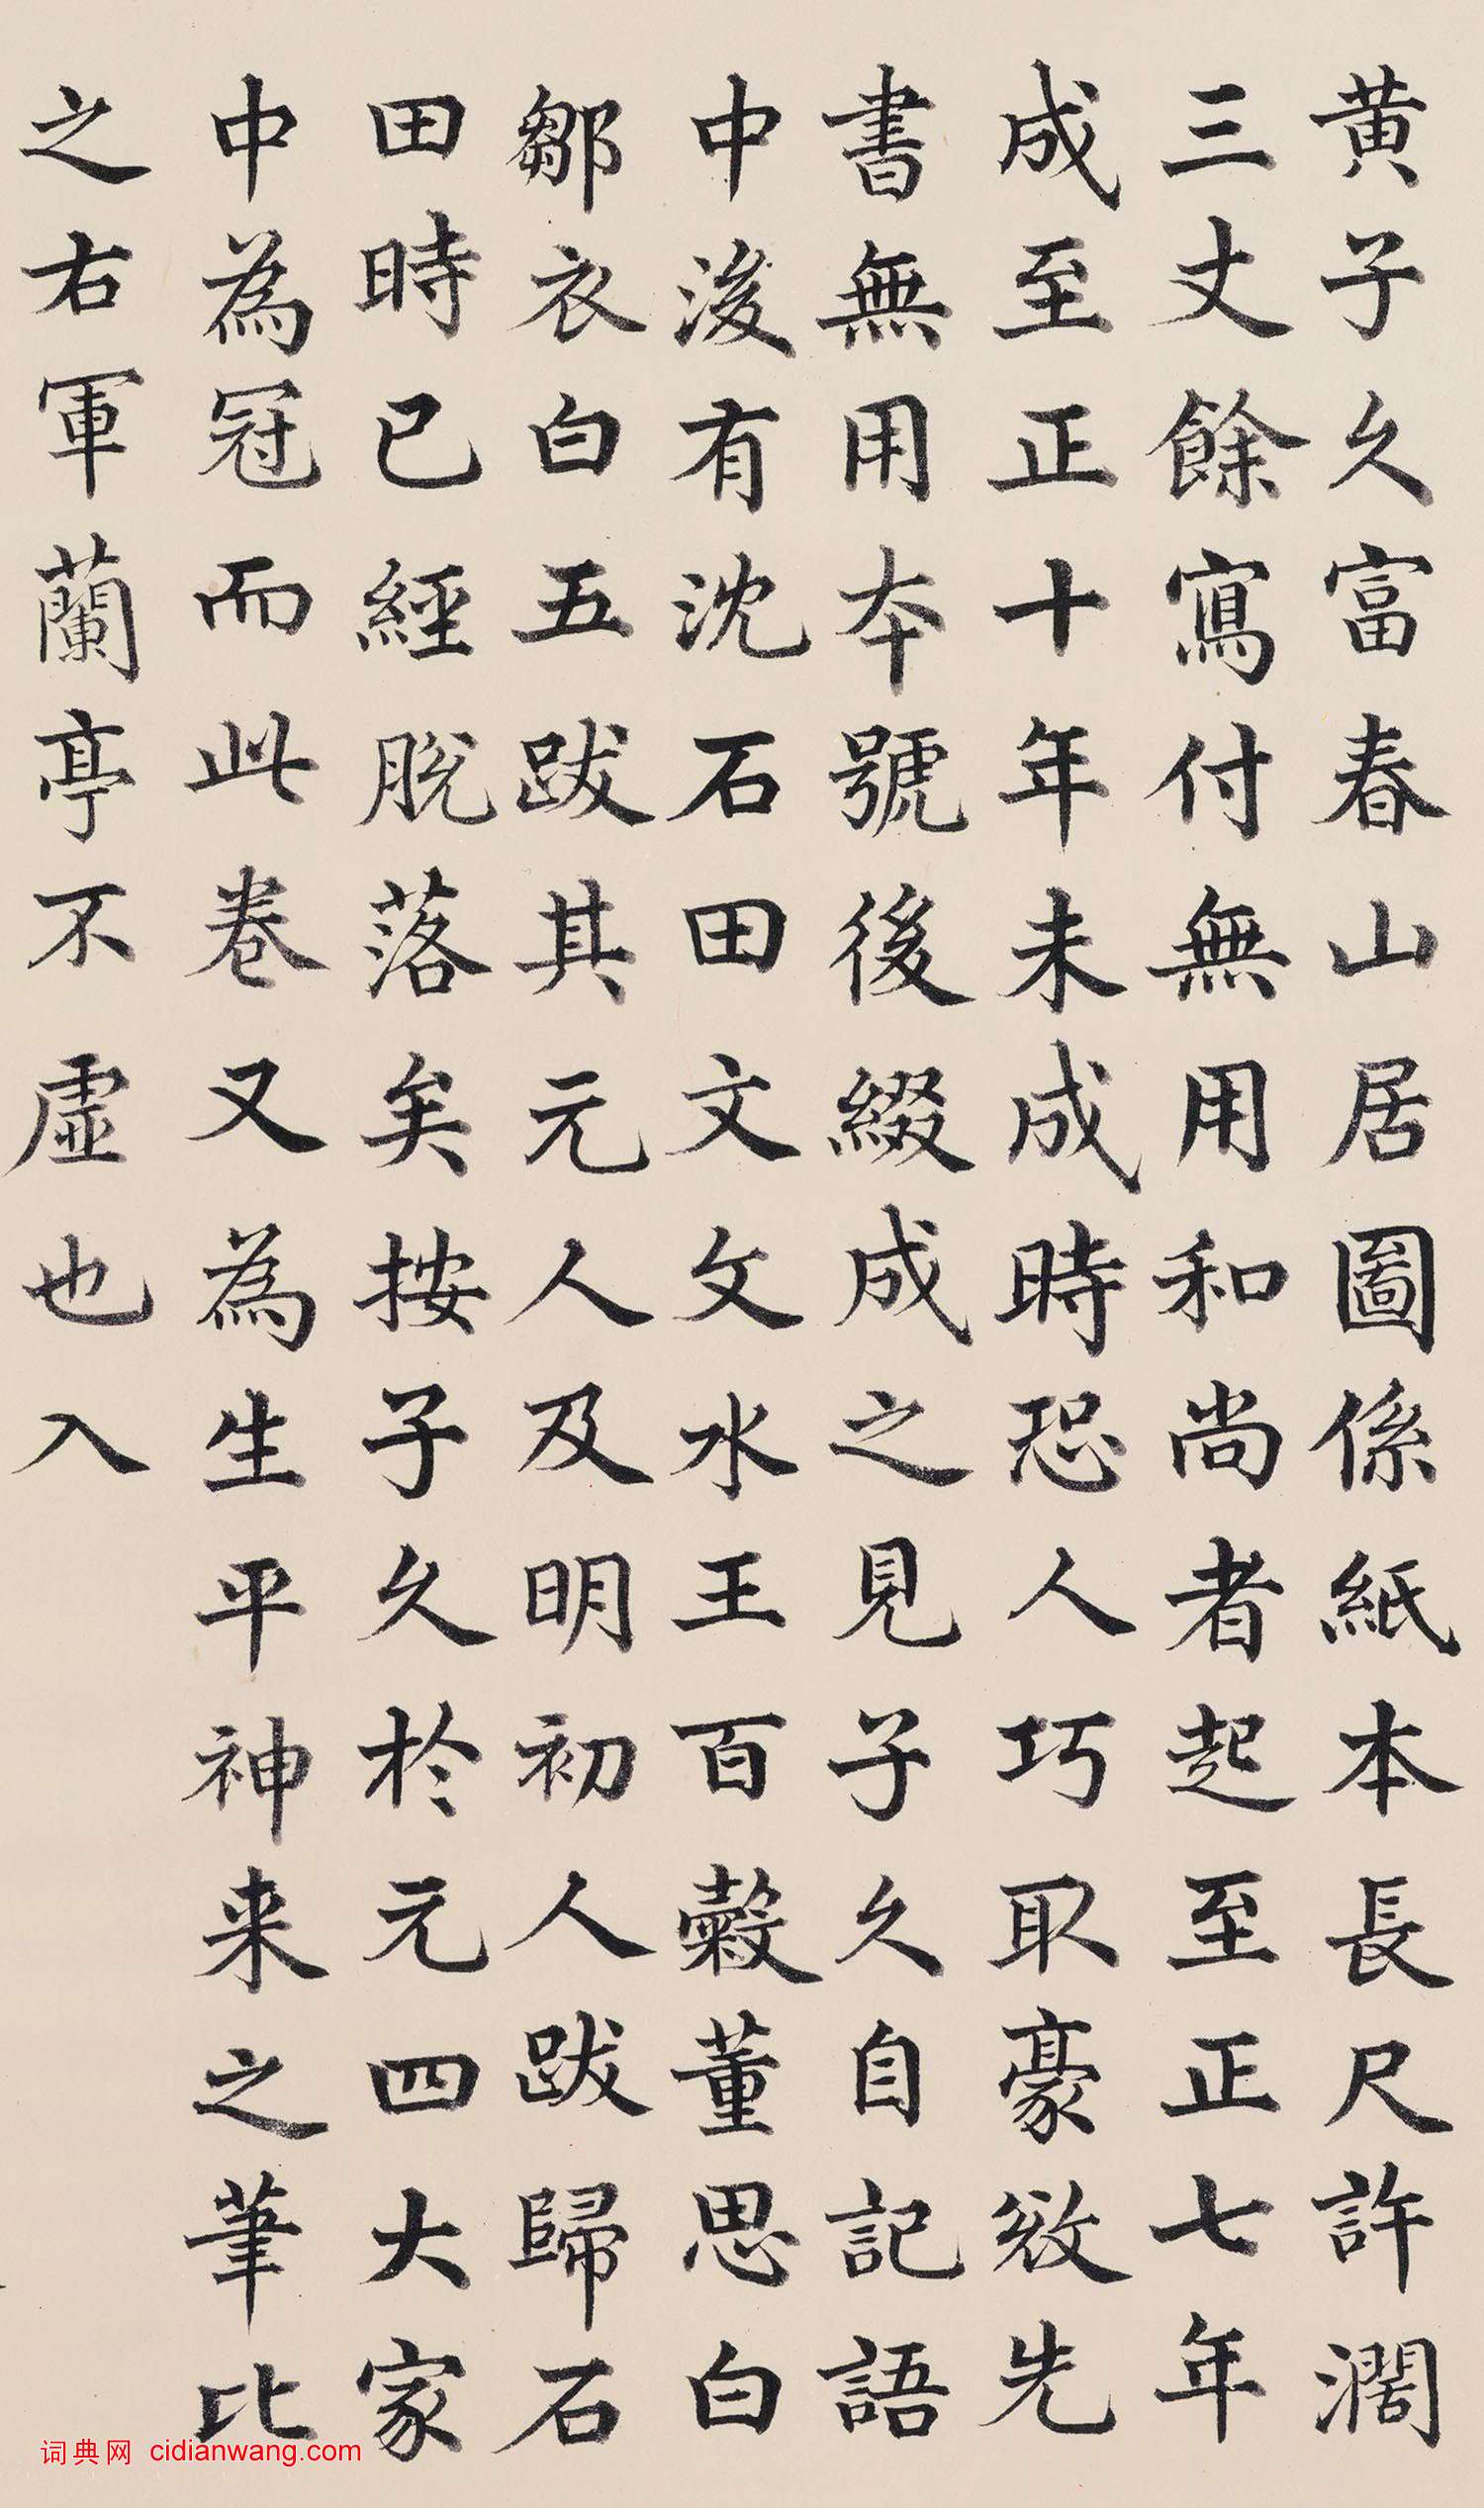 黃子久富春山居圖係紙本長尺許濶
三丈餘寫付無用和尚者起至正七年
成至正十年未成時恐人巧取豪敚先
書無用夲號後綴成之見子久自記語
中後有沈石田文文水王百穀董思白
鄒衣白五跋其元人及明初人跋歸石
田時已經脫落矣按子久於元四大家
中為冠而此卷又為生平神来之筆比
之右軍蘭亭不虛也入
词典网 cidianwang.com